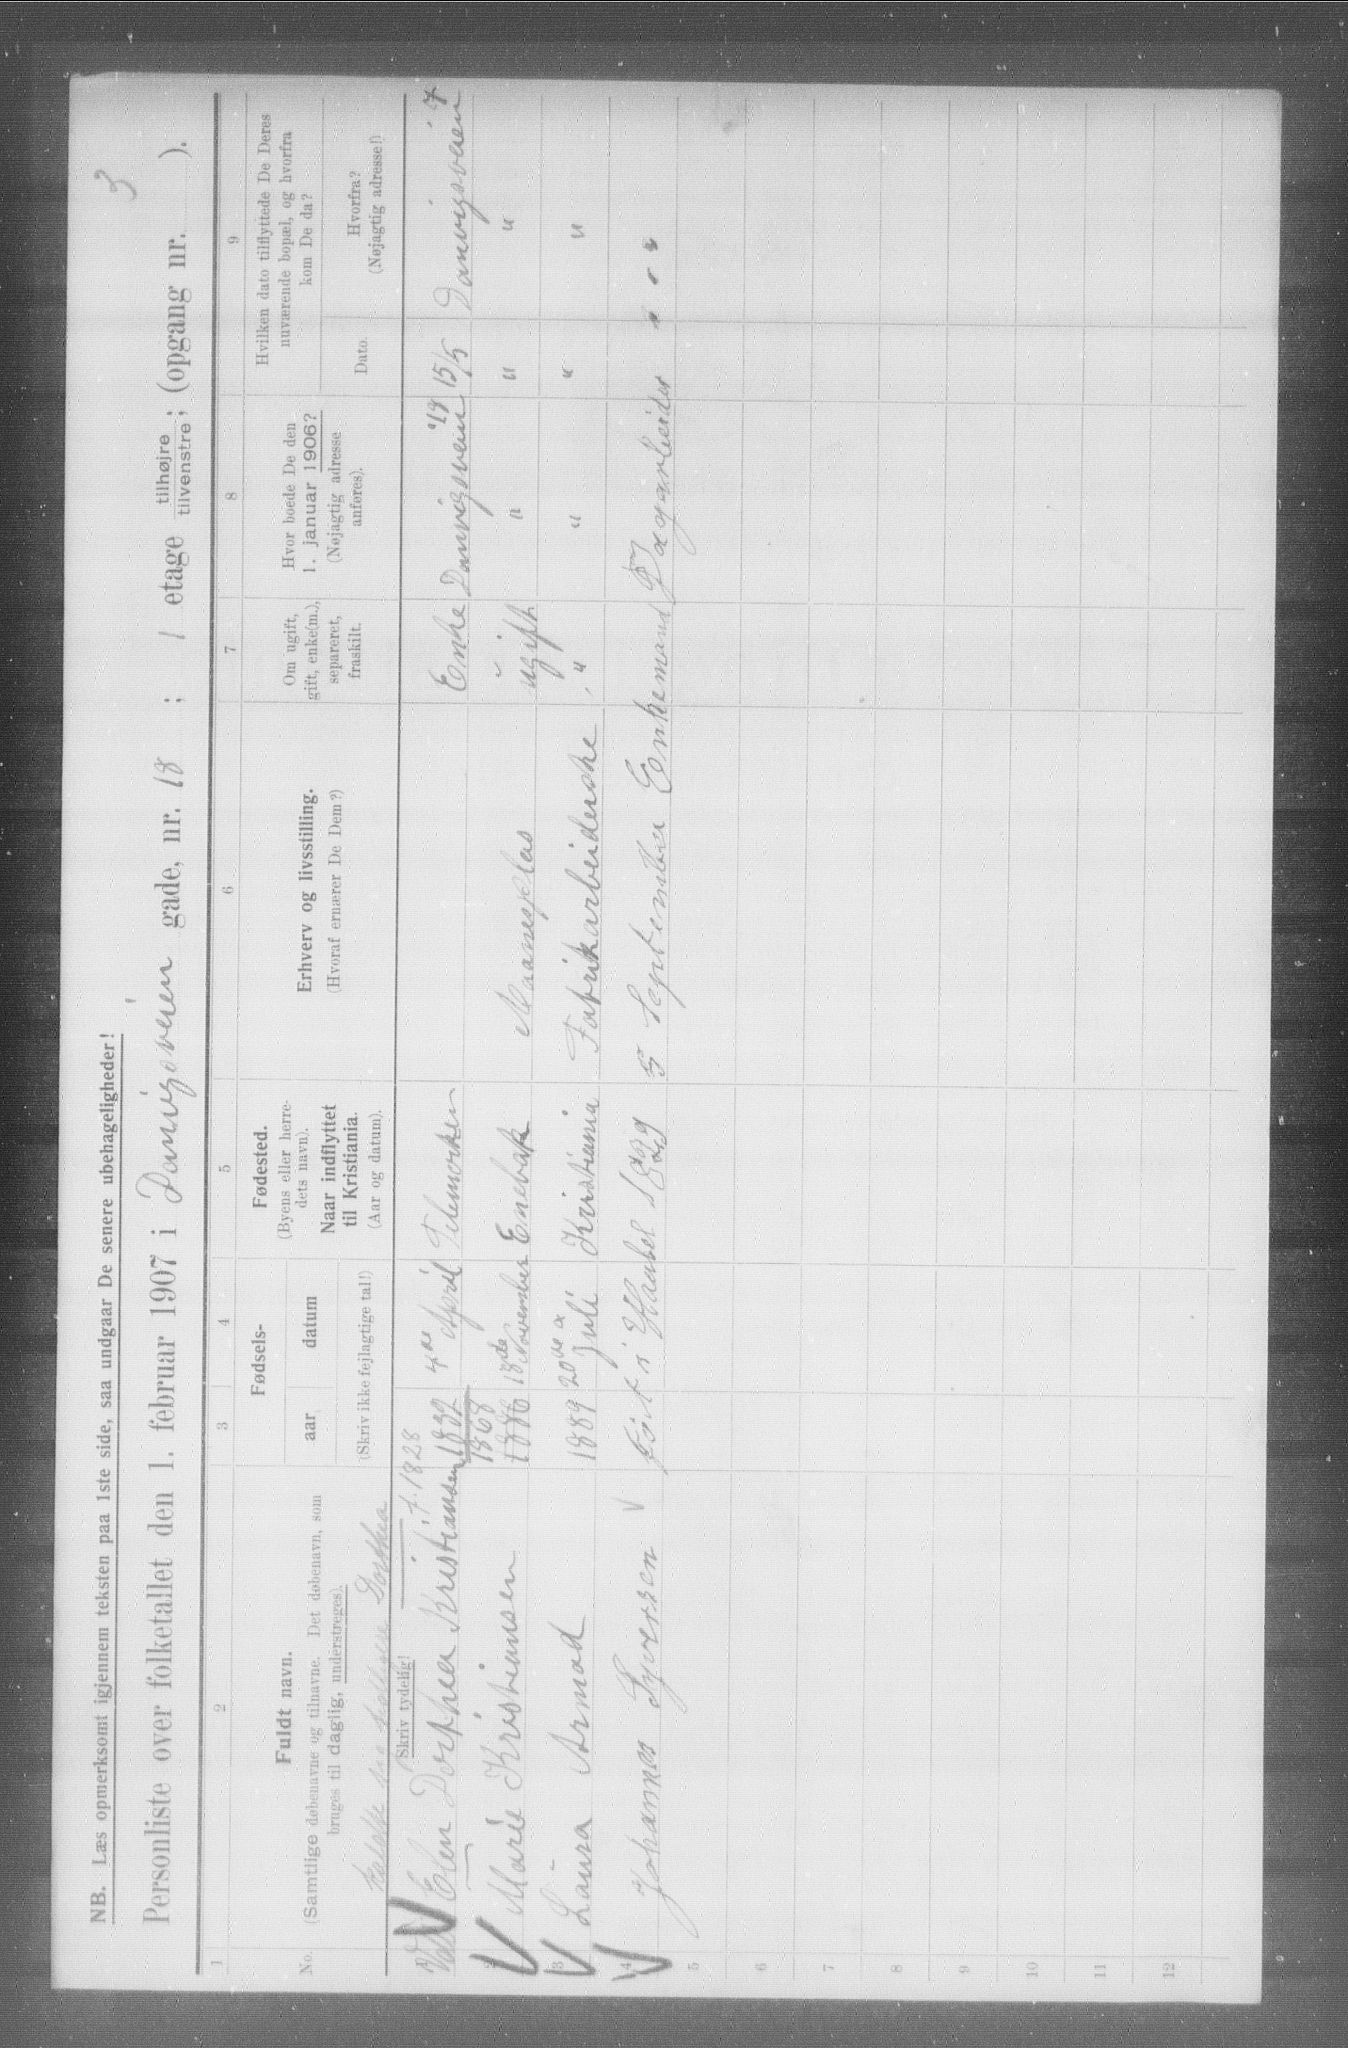 3
NB. Læs opmerksomt igjennem teksten paa 1ste side, saa undgaar De senere ubehageligheder!
Personliste over folketallet den 1. februar 1907 i Danvigsveien gade, nr. 18 ; 1 etage tilhøjre / tilvenstre; (opgang nr. ).
1 2 3 4 5 6 7 8 9
No. Fuldt navn. (Samtlige døbenavne og tilnavne. Det døbenavn, som bruges til daglig, understreges). Skriv tydelig!
Fødsels- aar datum (Skriv ikke fejlagtige tal!)
Fødested. (Byens eller herredets navn). Naar indflyttet til Kristiania. (Aar og datum).
Erhverv og livsstilling. (Hvoraf ernærer De Dem?)
Om ugift, gift, enke(m.), separeret, fraskilt.
Hvor boede De den 1. januar 1906? (Nøjagtig adresse anføres).
Hvilken dato tilflyttede De Deres nuværende bopæl, og hvorfra kom De da? Dato. Hvorfra? (Nøjagtig adresse!)
Dorthea
f. 1828
Elen Dorthea Kristiansen 1832 April Telemarken Enke Danvigsveien 18 15/5 Danvigsveien 7
2 Marie Kristiansen 1868 18de November Enebak ugift " " "
3 Laura Arnod 1889 20de Juli Kristiania Fabrikarbeiderske " " " "
4 Johannes Syversen født i 5 September Enkemand " " "
5
6
7
8
9
10
11
12